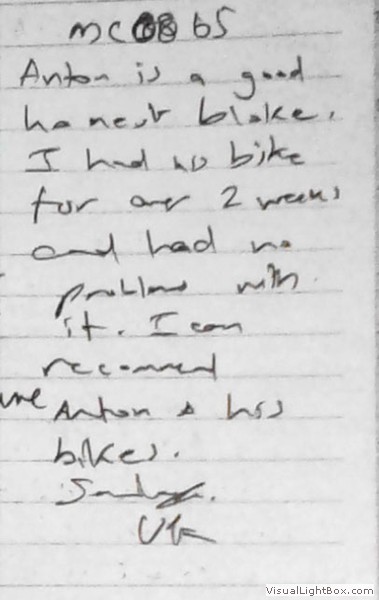 Anton is a good
honest bloke.
I had his bike
for over 2 weeks
and had no
problems with
it. I can
recommend
Anton & his
bikes.
UK
VisualLightBox.com